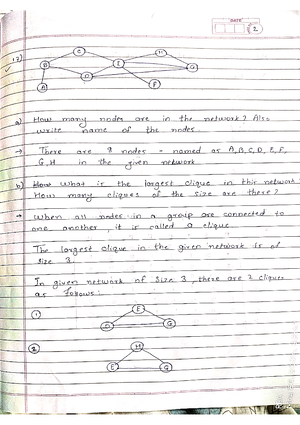 DATE
2
12)
C
H
B
E
G
D
A
F
a) How many nodes are in the network? Also
write name of the nodes.
→ There are 9 nodes - named as A,B,C,D,E,F,
G,H in the given network
b) How what is the largest clique in this network
How many cliques of the size are there?
→ When all nodes in a group are connected to
one another, it is called a clique.
The largest clique in the given network is of
size 3.
In given network of size 3, there are 2 cliques
as follows:
① E
D G
② H
E G